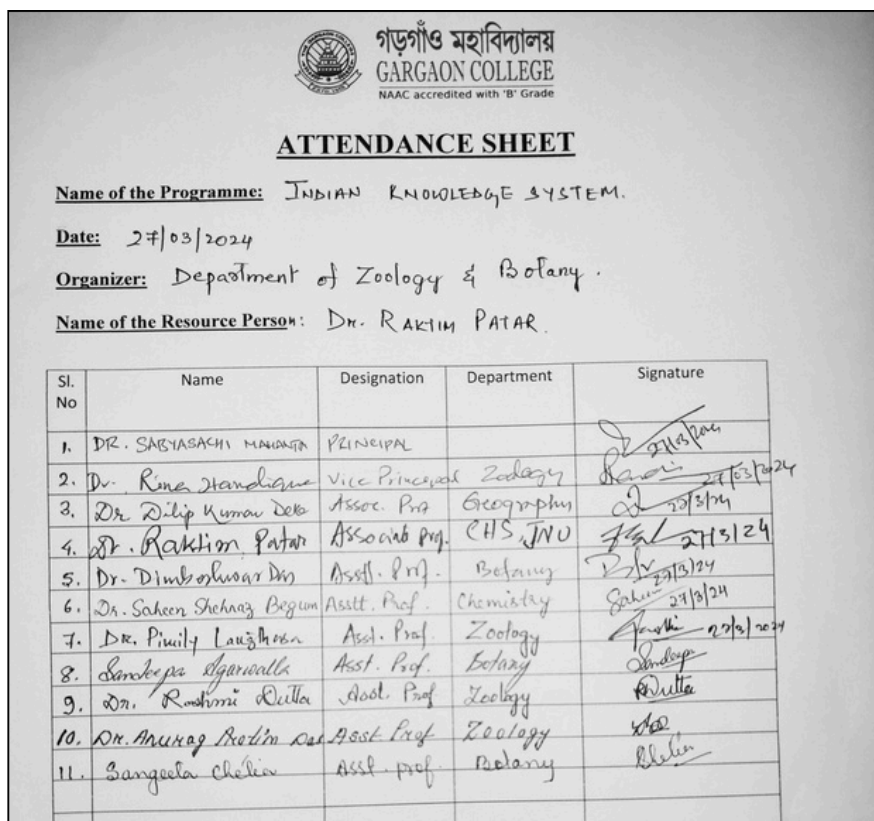 গড়গাঁও মহাবিদ্যালয়
GARGAON COLLEGE
NAAC accredited with 'B' Grade
ATTENDANCE SHEET
Name of the Programme: INDIAN KNOWLEDGE SYSTEM.
Date: 27/03/2024
Organizer: Department of Zoology & Botany.
Name of the Resource Person: Dr. RAKTIM PATAR.
Sl. No Name Designation Department Signature
1. DR. SABYASACHI MAHANTA PRINCIPAL 27/03/2024
2. Dr. Rina Handique Vice Principal Zoology 27/03/2024
3. Dr Dilip Kumar Deka Assoc. Prof Geography 27/3/24
4. Dr. Raktim Patar Associate Prof. CHS, JNU 27/3/24
5. Dr. Dimbeshwar Das Asstt. Prof. Botany 27/3/24
6. Dr. Saheen Shehnaz Begum Asstt. Prof. Chemistry Saheen 27/3/24
7. Dr. Pimily Langthasa Asst. Prof. Zoology 27/3/2024
8. Sandeepa Agarwalla Asst. Prof. Botany Sandeepa
9. Dr. Rashmi Dutta Asst. Prof Zoology RDutta
10. Dr. Anurag Protim Das Asst Prof Zoology
11. Sangeeta Chelia Asst. prof. Botany